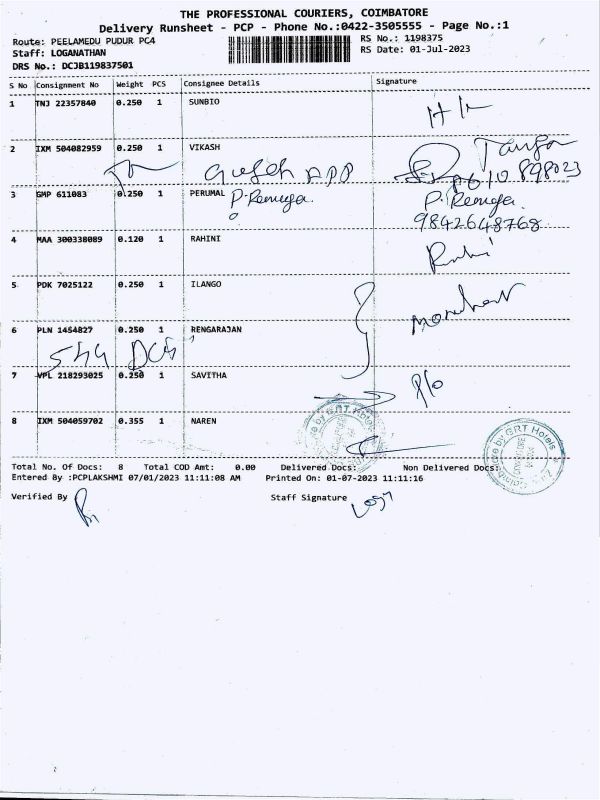 THE PROFESSIONAL COURIERS, COIMBATORE
Delivery Runsheet - PCP - Phone No.:0422-3505555 - Page No.:1
Route: PEELAMEDU PUDUR PC4 RS No.: 1198375
Staff: LOGANATHAN RS Date: 01-Jul-2023
DRS No.: DCJB119837501
S No Consignment No Weight PCS Consignee Details Signature
1 TNJ 22357840 0.250 1 SUNBIO
2 IXM 504082959 0.250 1 VIKASH
3 GMP 611083 0.250 1 PERUMAL P. Renuga. P. Renuga
9842648768
4 MAA 300338089 0.120 1 RAHINI
5 PDK 7025122 0.250 1 ILANGO
6 PLN 1454827 0.250 1 RENGARAJAN
7 VPL 218293025 0.250 1 SAVITHA
8 IXM 504059702 0.355 1 NAREN
by GRT Hotels
by GRT Hotels
Total No. Of Docs: 8 Total COD Amt: 0.00 Delivered Docs: Non Delivered Docs:
Entered By :PCPLAKSHMI 07/01/2023 11:11:08 AM Printed On: 01-07-2023 11:11:16
Verified By Staff Signature